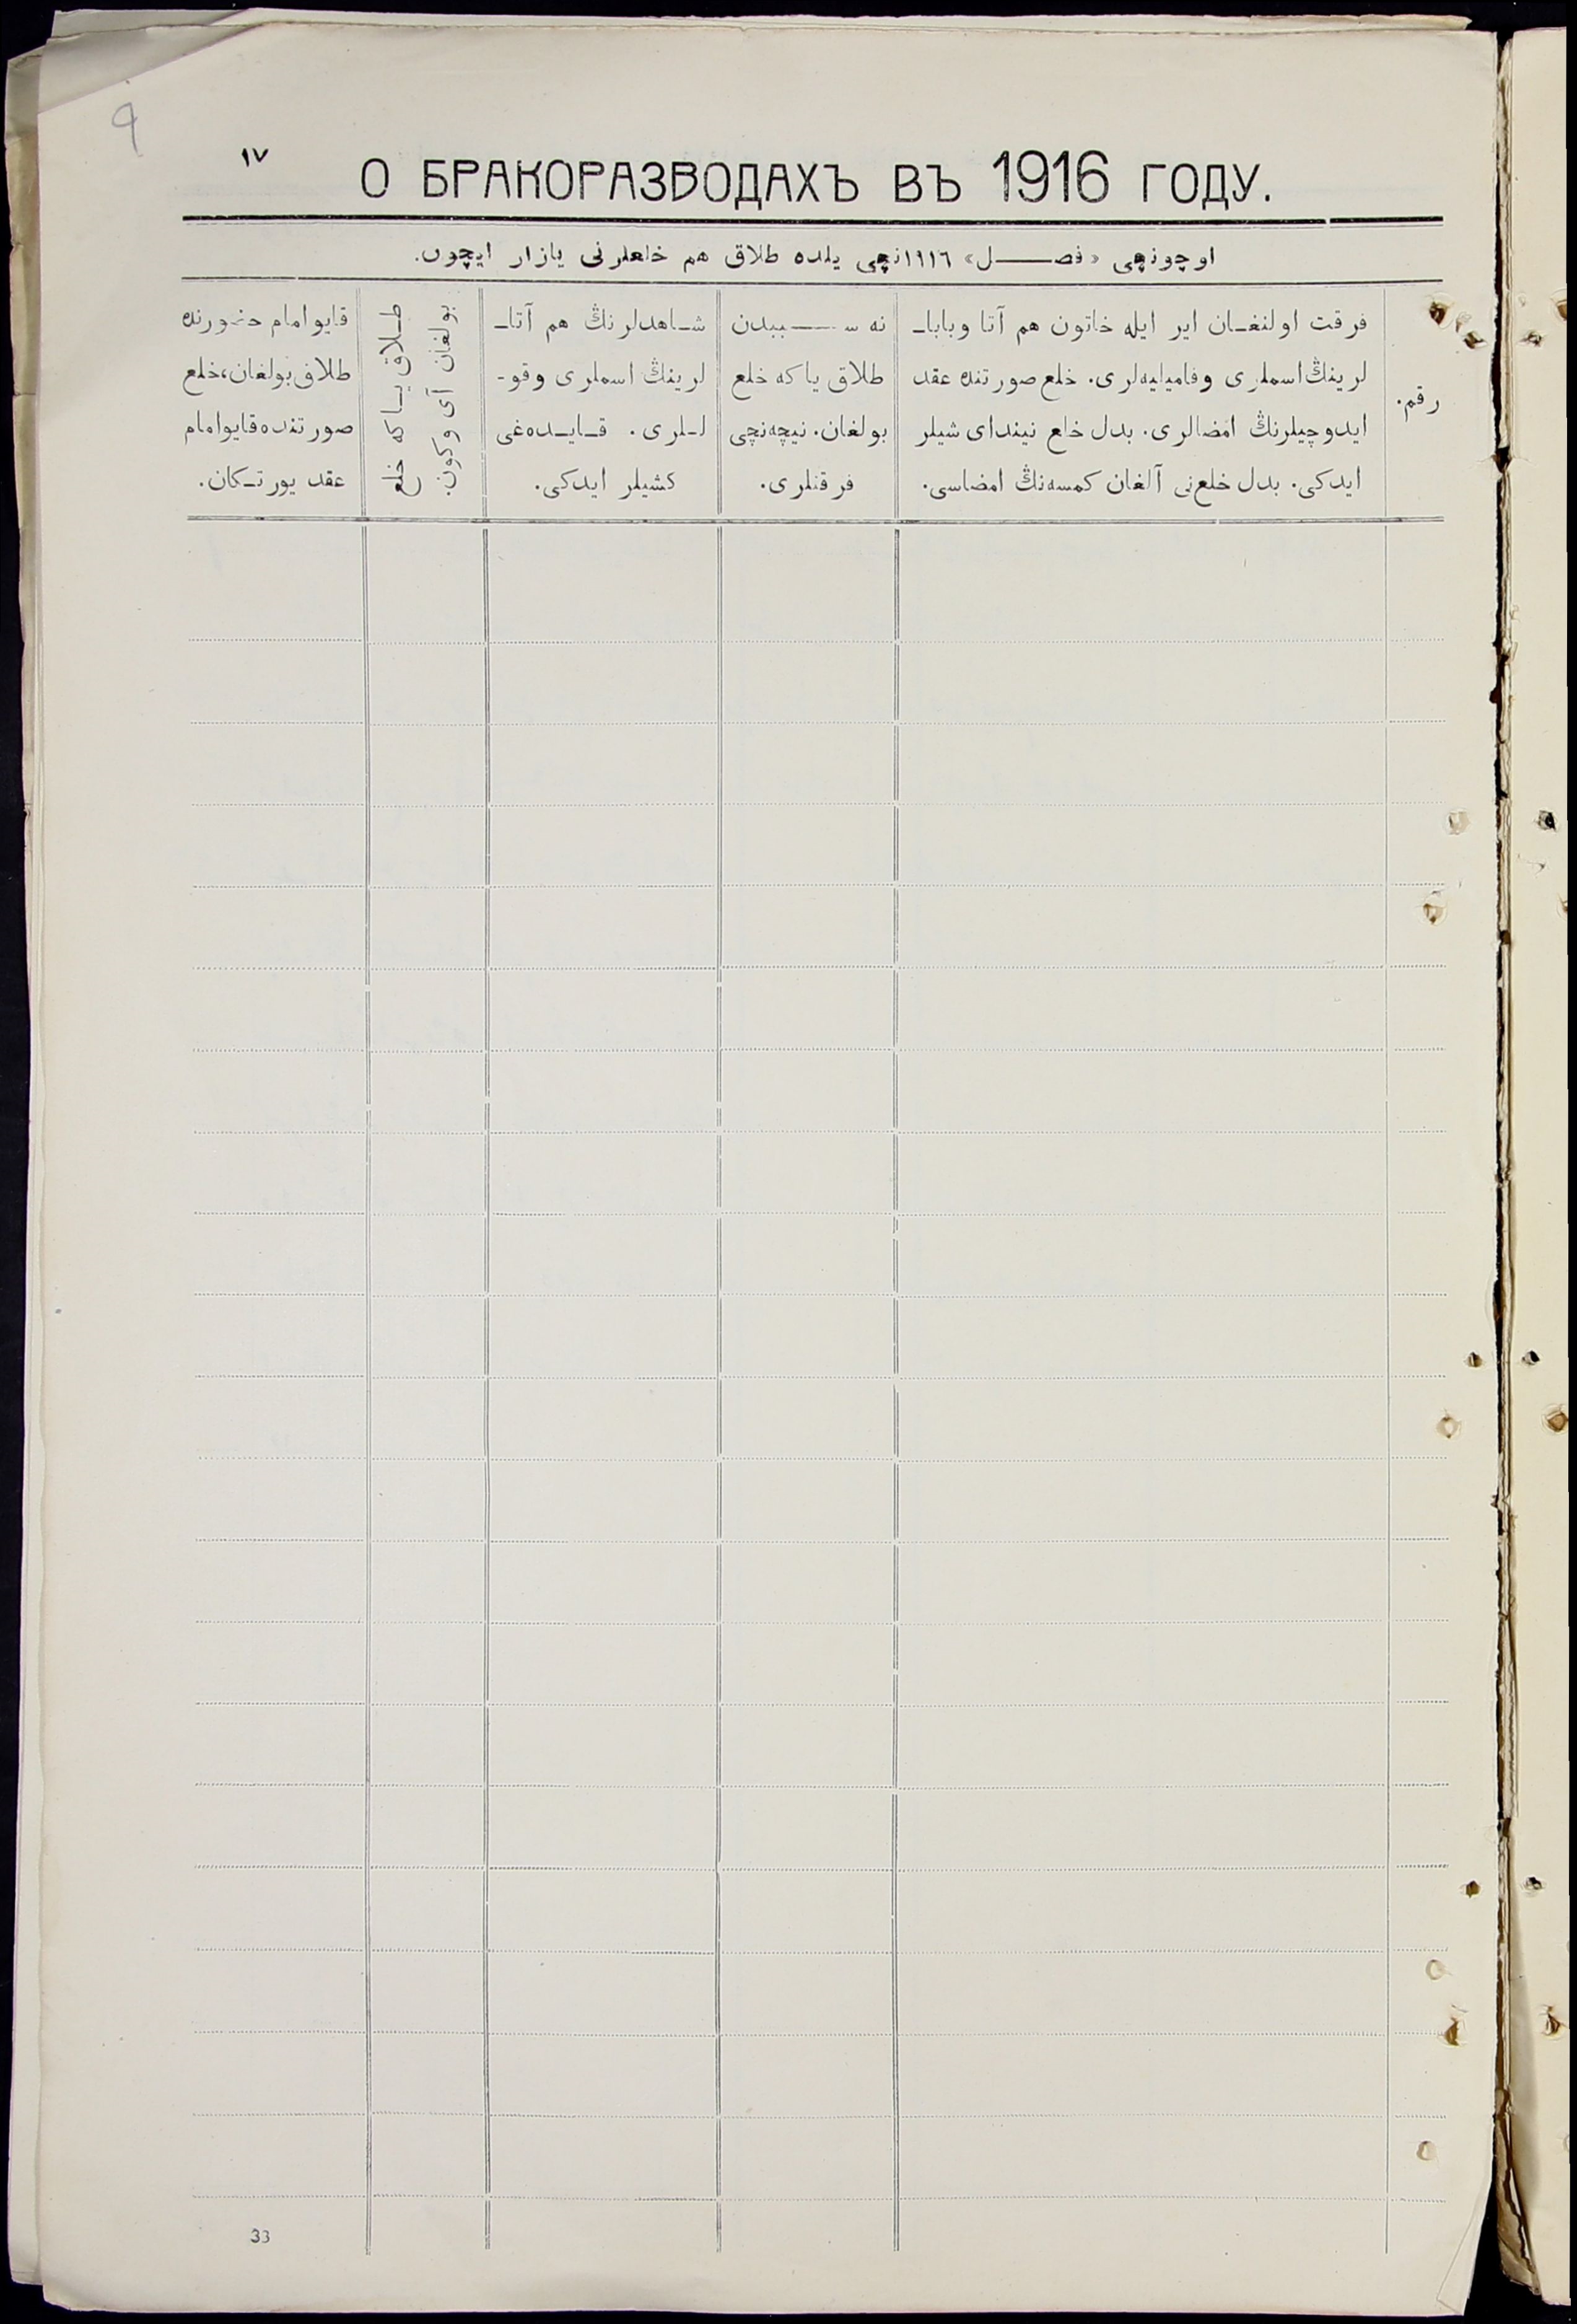 9
١٧
О БРАКОРАЗВОДАХЪ ВЪ 1916 ГОДУ.
اوچونچی «فصـــل» ١٩١٦نچی یلده طلاق هم خلعلرنی یازار ایچون.
رقم.
فرقت اولنغـان ایر ایله خاتون هم آتا وباباـ
لرینڭ اسملری وفامیلیه‌لری. خلع صورتنده عقد
ایدوچیلرنڭ امضالری. بدل خلع نیندای شیلر
ایدکی. بدل خلع‌نی آلغان کمسه‌نڭ امضاسی.
نه ســـببدن
طلاق یاکه خلع
بولغان. نیچه‌نچی
فرقتلری.
شـاهدلرنڭ هم آتاـ
لرینڭ اسملری وقوـ
لـلری. قـایـده‌غی
کشیلر ایدکی.
طـلاق یـاکه خلع
بولغان آی وکون.
قایو امام حضورنده
طلاق بولغان، خلع
صورتنده قایو امام
عقد یورتـکان.
33